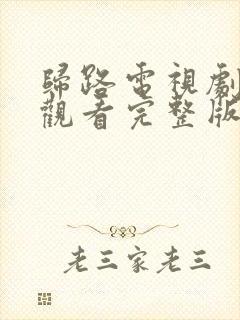 歸路電視劇
觀看完整版
老三家老三